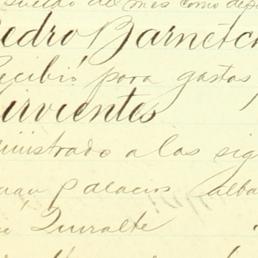 sueldo del mes como dep
Pedro Barnetch
Recibió para gastos
Sirvientes
ministrado a los sig
Juan Palacios alba
Iturralte